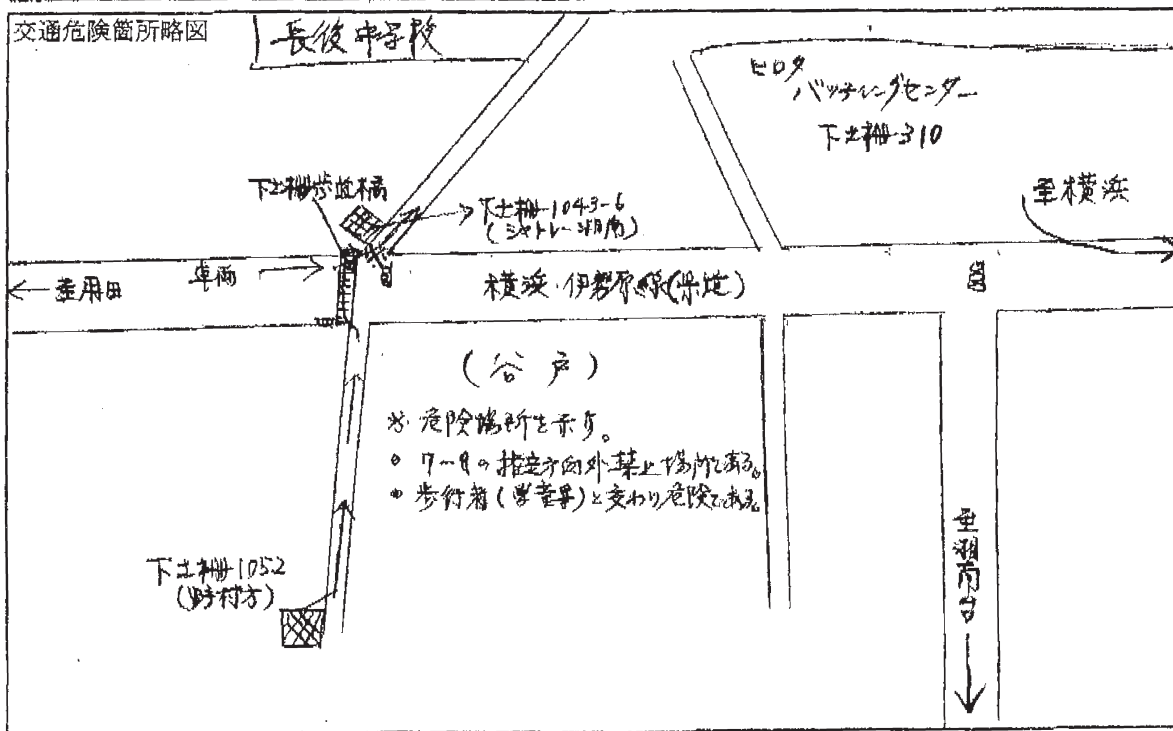 交通危険箇所略図
長後中学校
ヒロタ
バッティングセンター
下土棚310
下土棚歩道橋
下土棚1043-6
(シャトレー湘南)
至横浜
至用田
車両
横浜・伊勢原線(県道)
(谷戸)
※ 危険場所を示す。
○ 7-9の指定方向外禁止場所である。
○ 歩行者(学童等)と交わり危険である。
下土棚1052
(野村方)
至湘南台